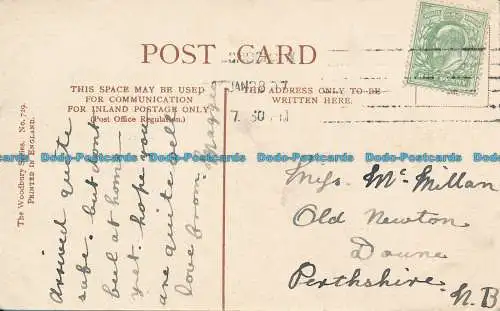 POST CARD
THIS SPACE MAY BE USED
FOR COMMUNICATION
FOR INLAND POSTAGE ONLY
(Post Office Regulation.)
THE ADDRESS ONLY TO BE
WRITTEN HERE.
JAN 28 07
7. 30 PM
The Woodbury Series. No. 729.
PRINTED IN ENGLAND.
arrived quite
safe. but dont
feel at home
yet. hope you
are quite well
love from. Maggie
Miss Mc Millan
Old Newton
Doune
Perthshire.
N. B
Dodo-Postcards Dodo-Postcards Dodo-Postcards Dodo-Postcards Dodo-Postcards